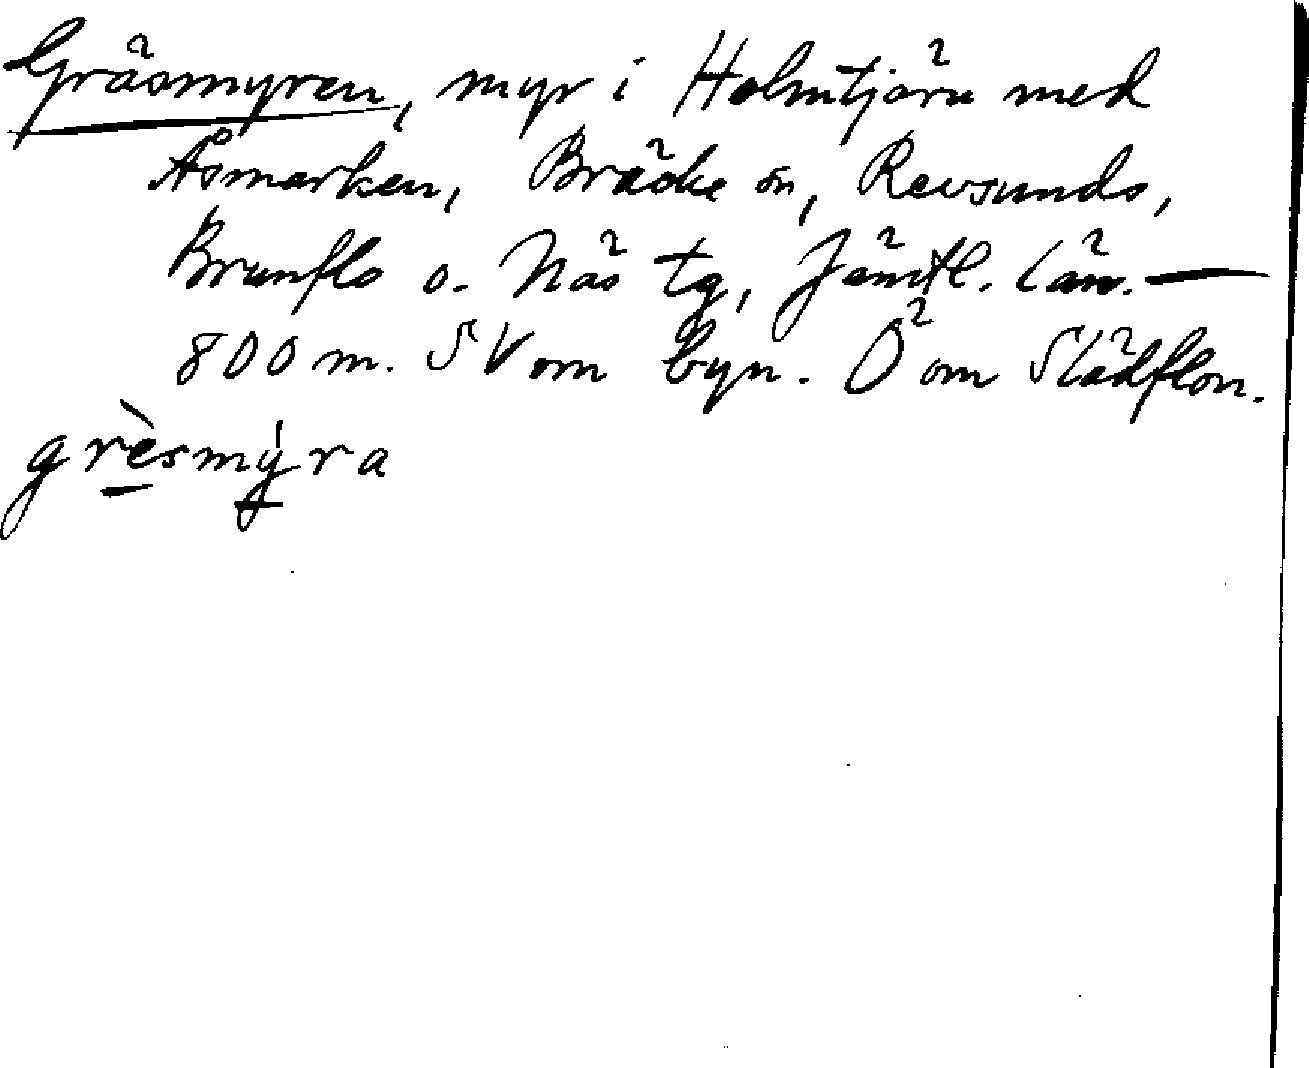 Gräsmyren, myr i Holmtjärn med
Åsmarken, Bräcke sn, Revsunds,
Brunflo o. Näs tg, Jämtl. län. —
800 m. SV om byn. Ö om Slädflon.
grèsmýra